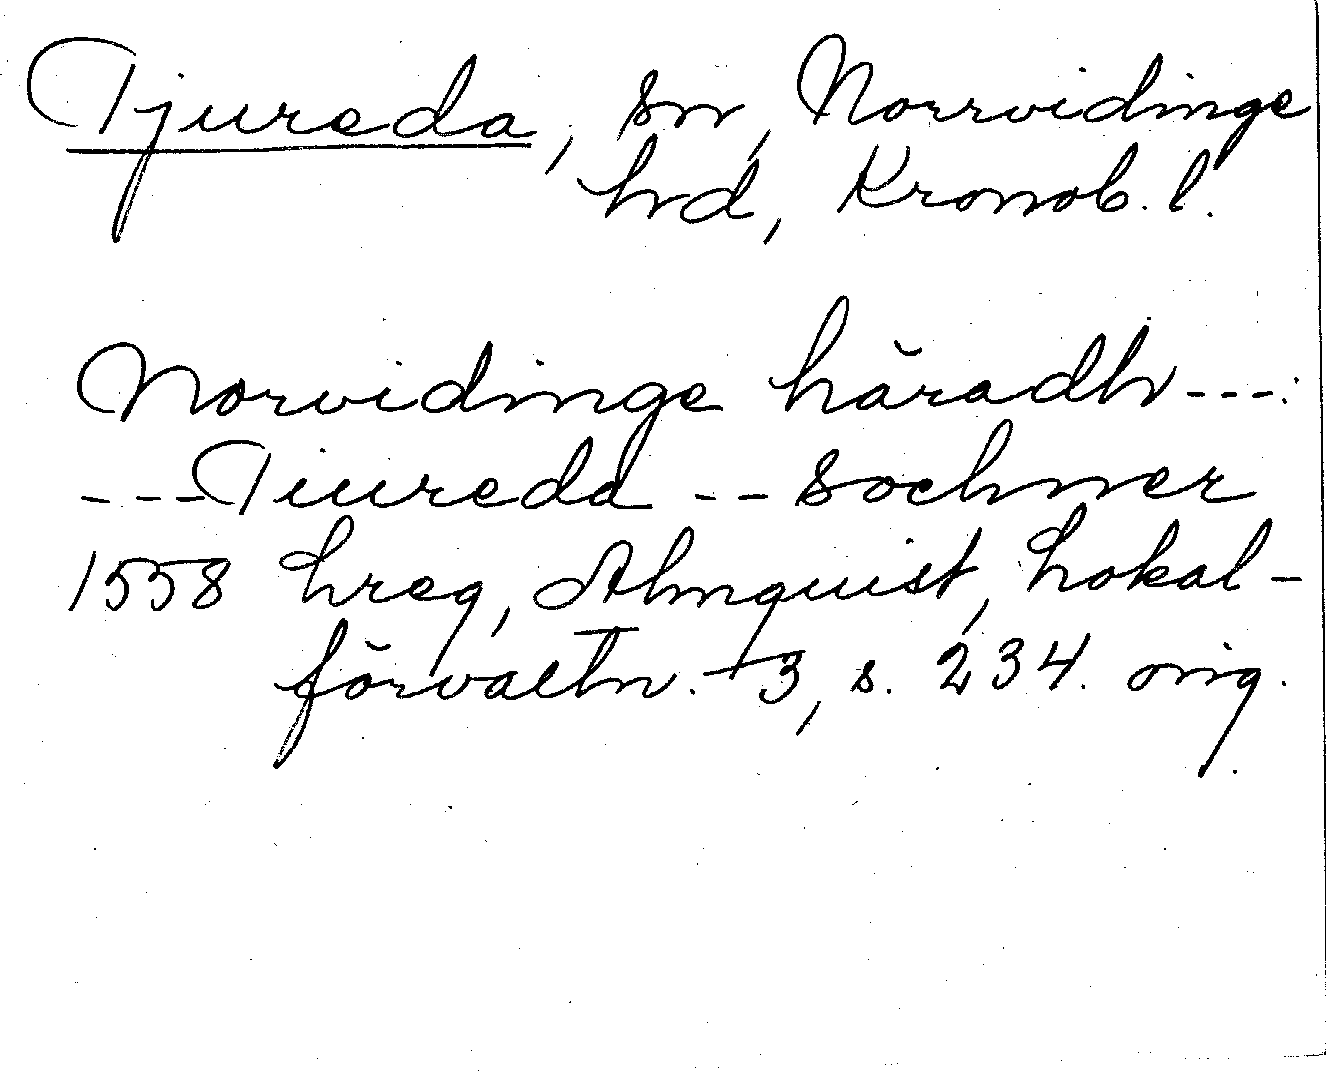 Tjureda, sn, Norrvidinge
hd, Kronob. l.
Norvidinge häradh ---
--- Tiureda -- sochner
1558 hreg, Almquist, Lokal-
förvaltn. 3, s. 234. orig.